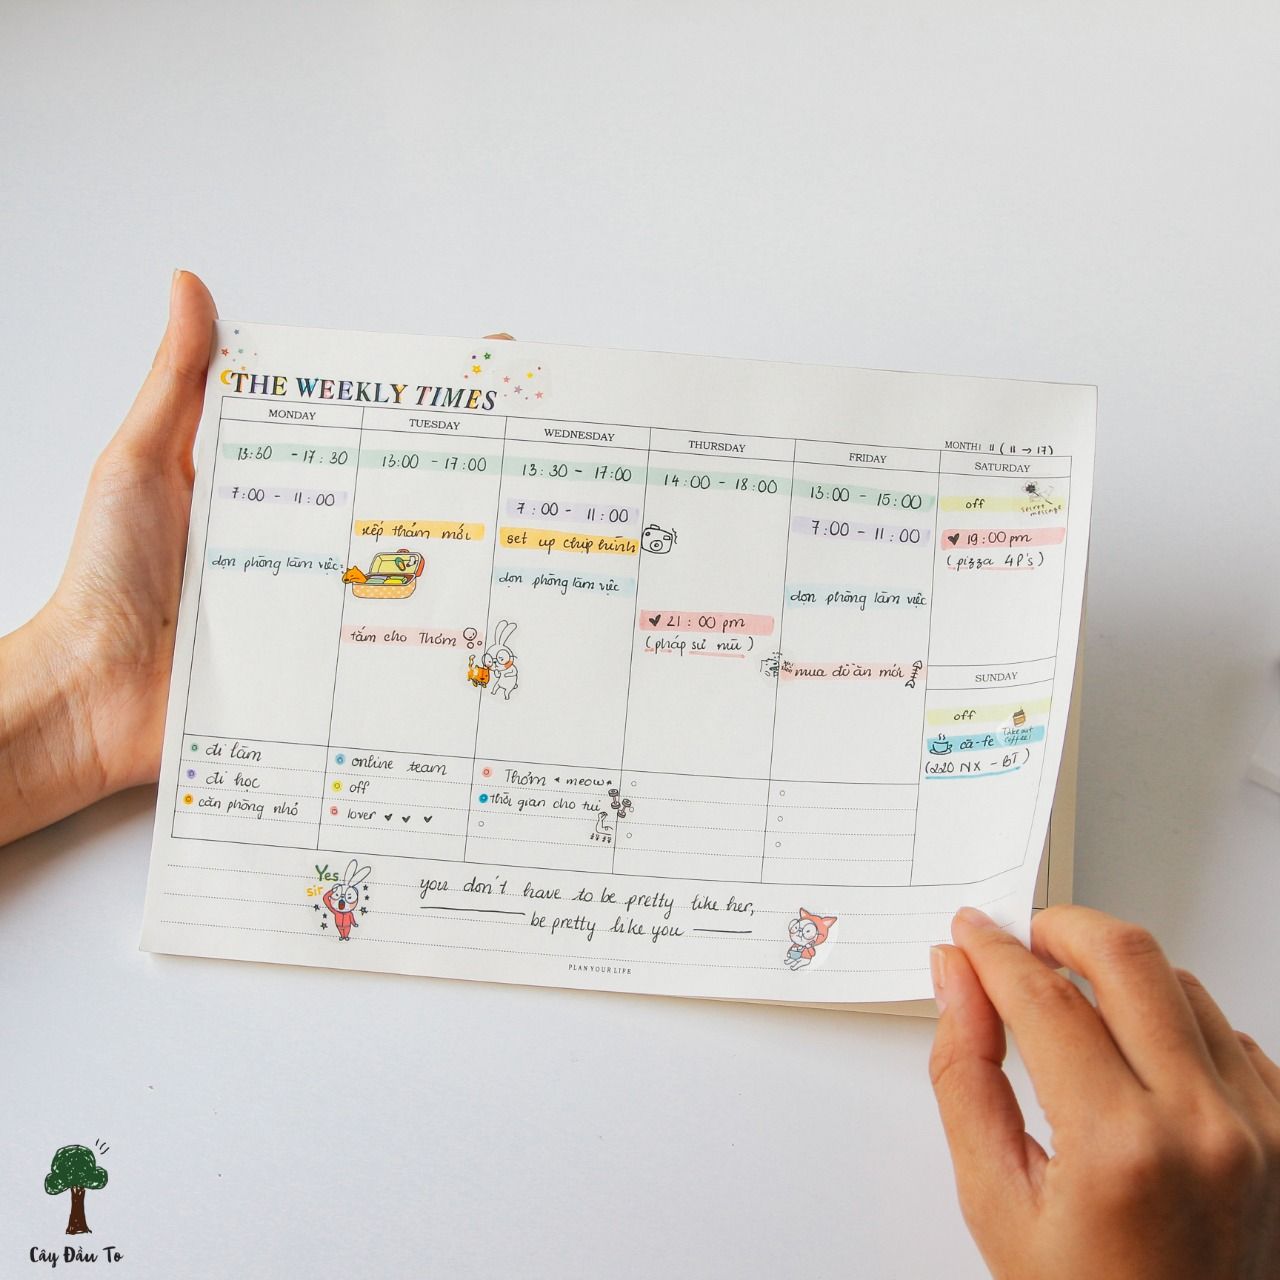 THE WEEKLY TIMES
MONTH: 11 (11 → 17)
MONDAY
13:30 - 17:30
7:00 - 11:00
dọn phòng làm việc
TUESDAY
13:00 - 17:00
xếp thảm mới
tắm cho Thóm
WEDNESDAY
13:30 - 17:00
7:00 - 11:00
set up chụp hình
dọn phòng làm việc
THURSDAY
14:00 - 18:00
21:00 pm
(pháp sư mù)
FRIDAY
13:00 - 15:00
7:00 - 11:00
dọn phòng làm việc
mua đồ ăn mới
SATURDAY
off
secret
message
19:00 pm
(pizza 4P's)
SUNDAY
off
Take out
coffee!
cà-fe
(220 NX - BT)
đi làm
đi học
căn phòng nhỏ
online team
off
lover
Thóm meow
thời gian cho tui
Yes
sir
you don't have to be pretty like her,
be pretty like you
PLAN YOUR LIFE
Cây Đầu To